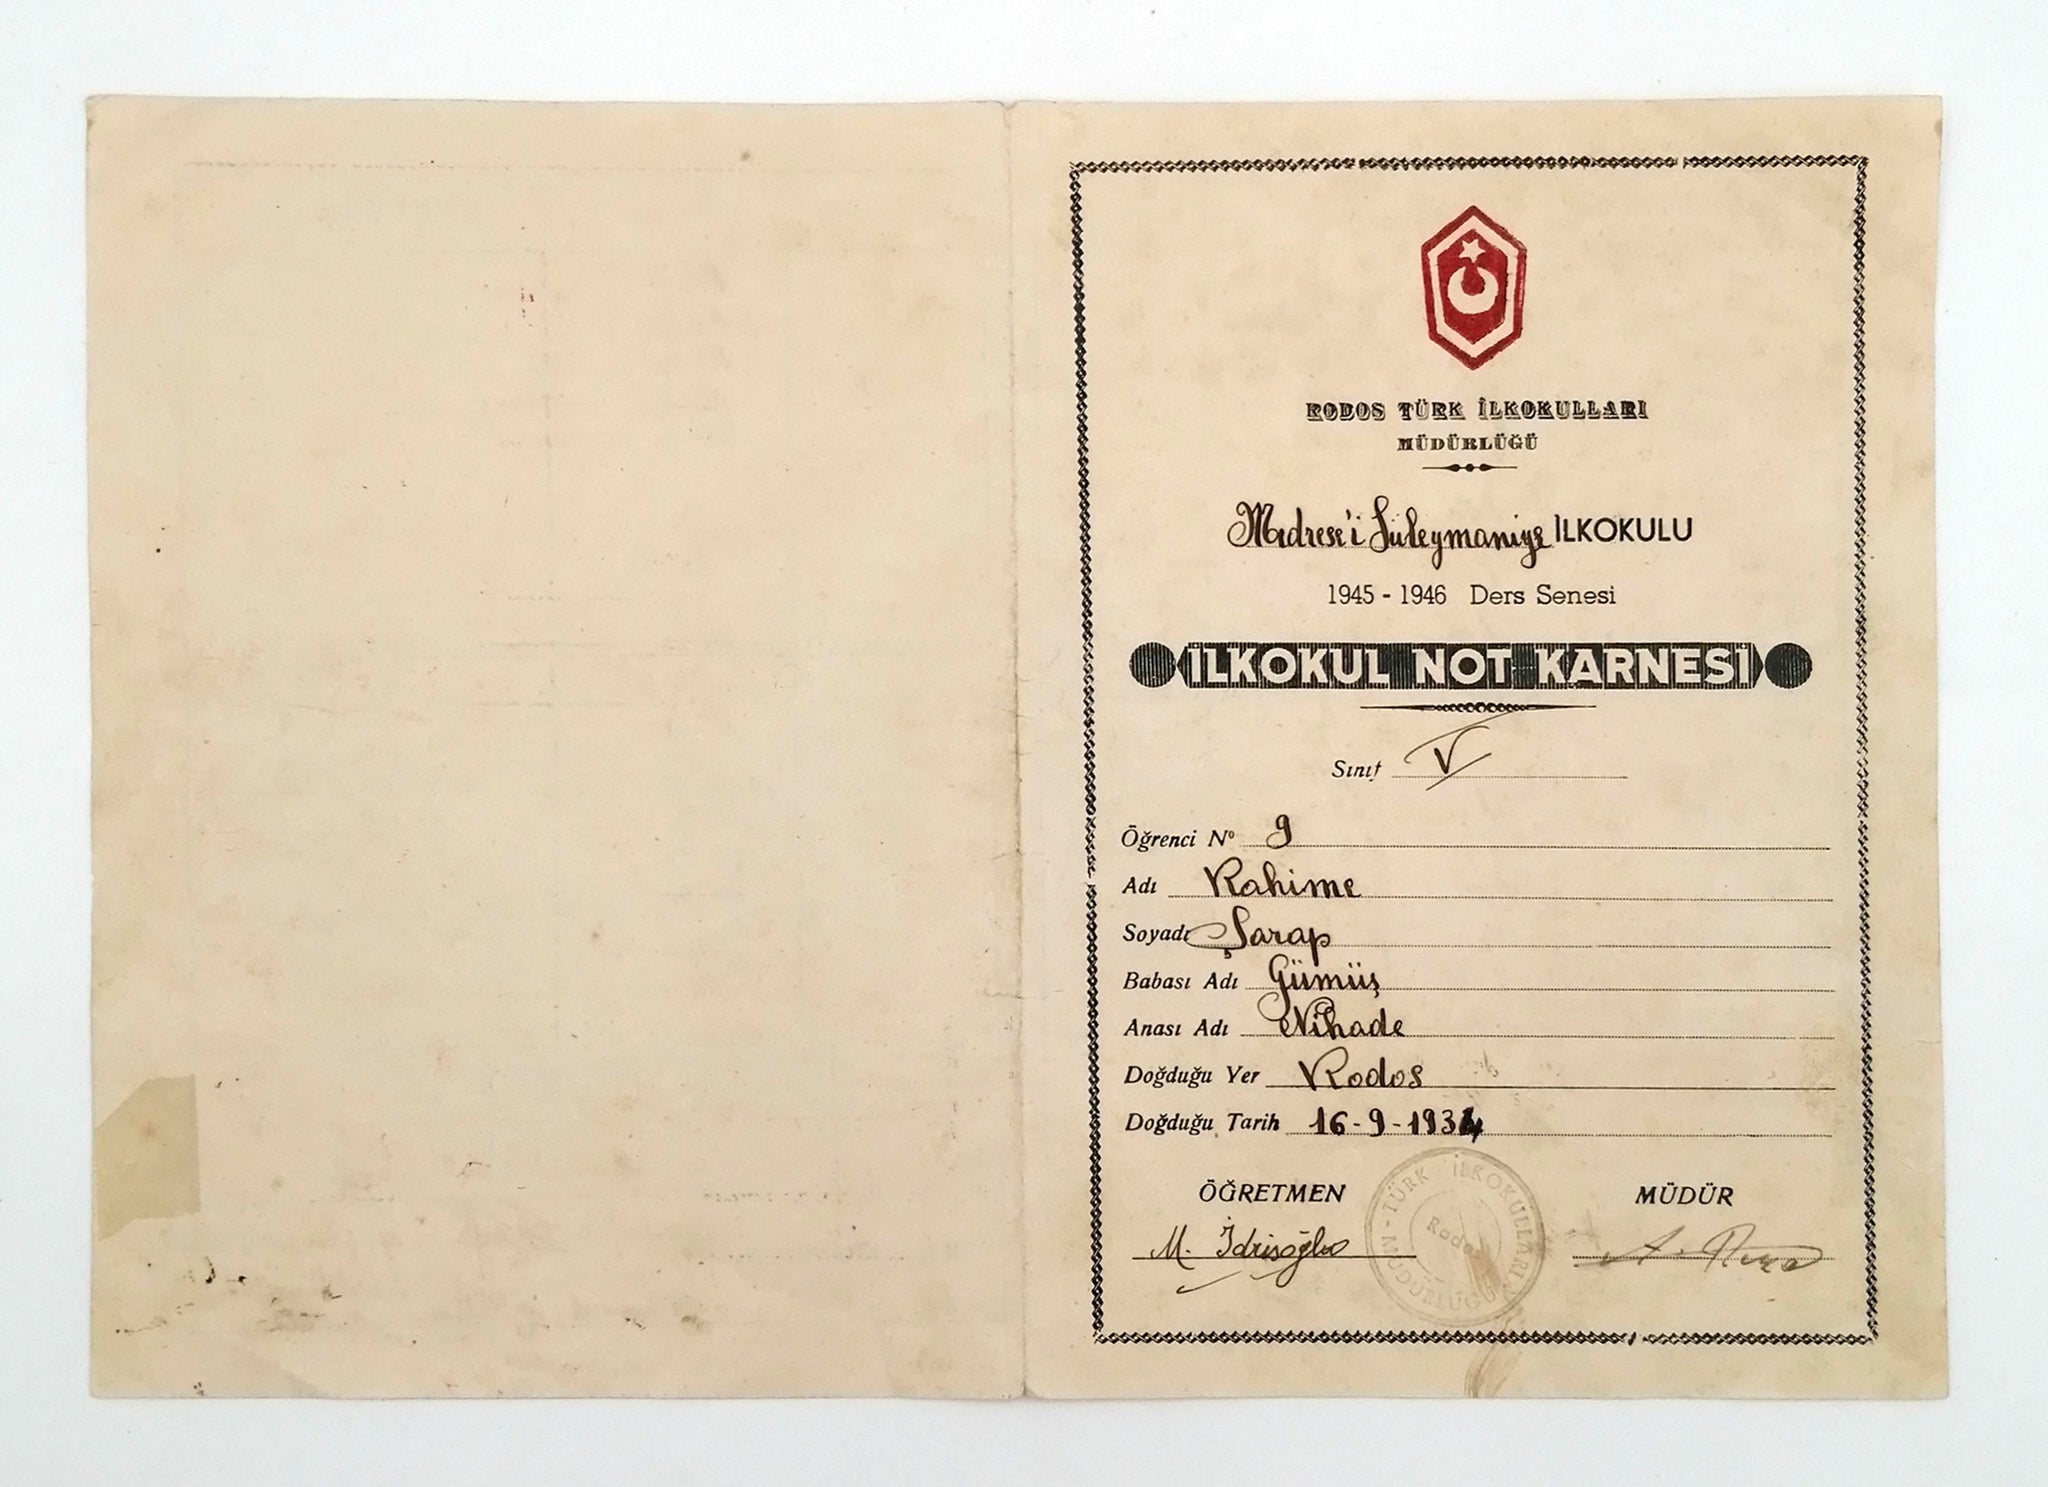 RODOS TÜRK İLKOKULLARI
MÜDÜRLÜĞÜ
Medrese'i Süleymaniye İLKOKULU
1945 - 1946 Ders Senesi
İLKOKUL NOT KARNESİ
Sınıf V
Öğrenci Nº 9
Adı Rahime
Soyadı Şarap
Babası Adı Gümüş
Anası Adı Nihade
Doğduğu Yer Rodos
Doğduğu Tarih 16-9-1934
ÖĞRETMEN MÜDÜR
M. İdrisoğlu A.
TÜRK İLKOKULLARI MÜDÜRLÜĞÜ
Rodos